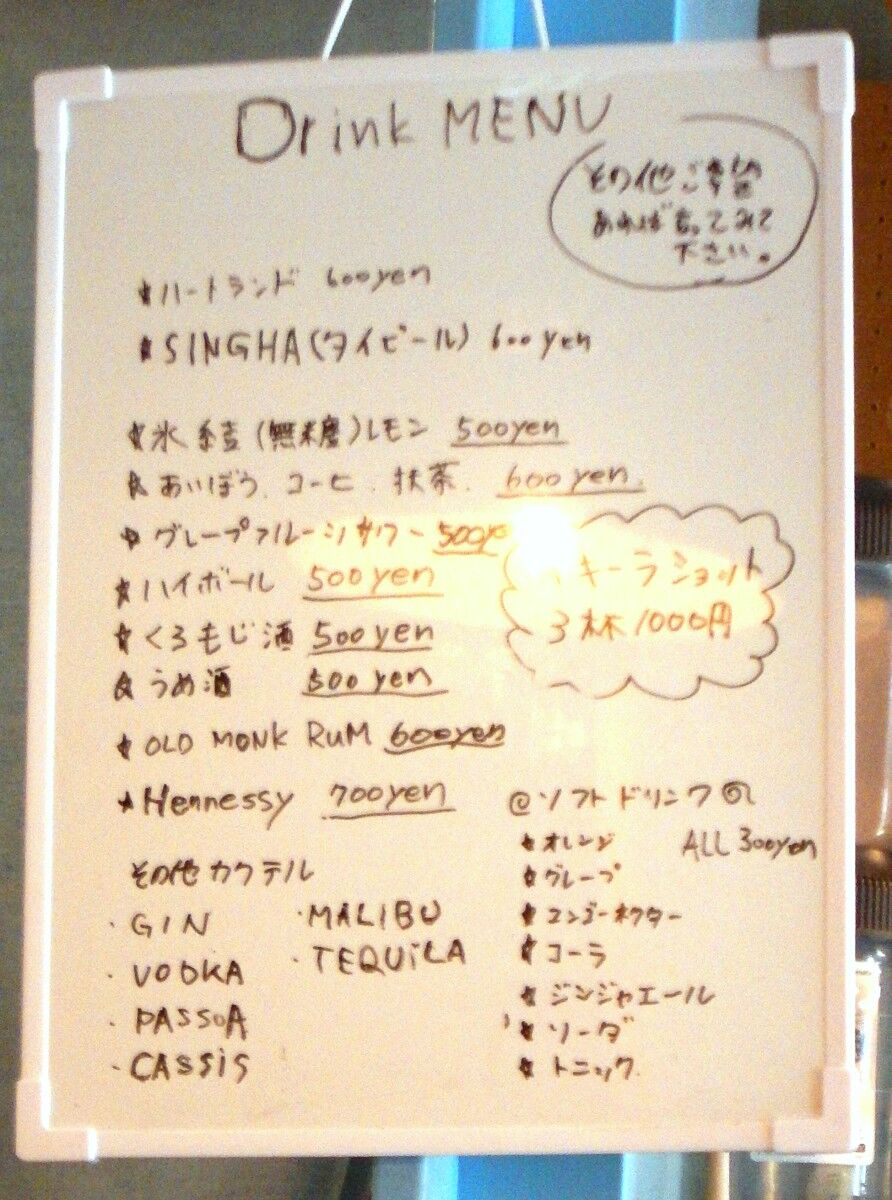 Drink MENU
その他ご希望
あれば言ってみて
下さい。
★ハートランド 600yen
★SINGHA(タイビール) 600yen
★氷結(無糖)レモン 500yen
★あいぼう、コーヒ、抹茶、 600yen.
★グレープフルーツサワー 500ye
★ハイボール 500yen
キーラショット
3杯1000円
★くろもじ酒 500yen
★うめ酒 500yen
★OLD MONK RUM 600yen
★Hennessy 700yen
@ソフトドリンク@
ALL 300yen
★オレンジ
★グレープ
★マンゴーネクター
★コーラ
★ジンジャエール
★ソーダ
★トニック
その他カクテル
・GIN
・VODKA
・PASSOA
・CASSIS
・MALIBU
・TEQUILA